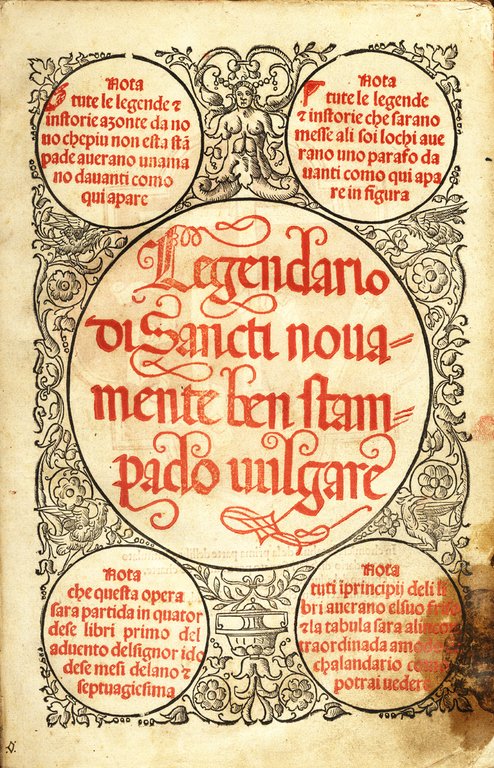 Nota
tute le legende ⁊
instorie azonte da no
uo che piu non esta stā
pade auerano una ma
no dauanti como
qui apare
Nota
tute le legende
⁊ instorie che sarano
messe ali soi lochi aue
rano uno parafo da
uanti como qui apa
re in figura
Legendario
di Sancti noua-
mente ben stam-
pado uulgare
Nota
che questa opera
sara partida in quator
dese libri primo del
aduento del signor ⁊ do
dese mesi del ano ⁊
septuagiesima
Nota
tuti īprincipij deli li
bri auerano el suo
⁊ la tabula sara
chalandario como
potrai uedere